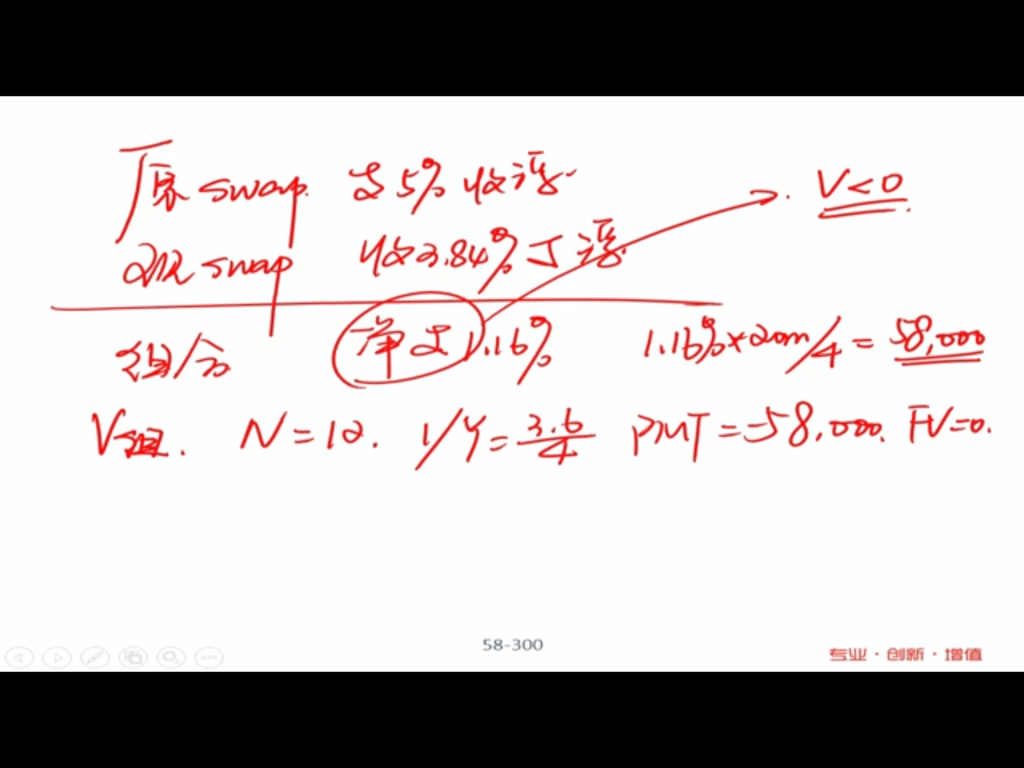 原swap. 支5% 收浮.
V<0
现swap 收3.84% 支浮.
组合 净支1.16% 1.16%×20m/4 = 58,000
V组. N=12. I/Y=3.6/4 PMT=-58,000. FV=0.
58-300
专业·创新·增值